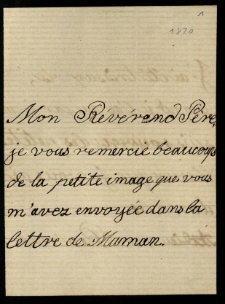 1
1870
Mon Révérend Père,
je vous remercie beaucoup
de la petite image que vous
m'avez envoyée dans la
lettre de Maman.